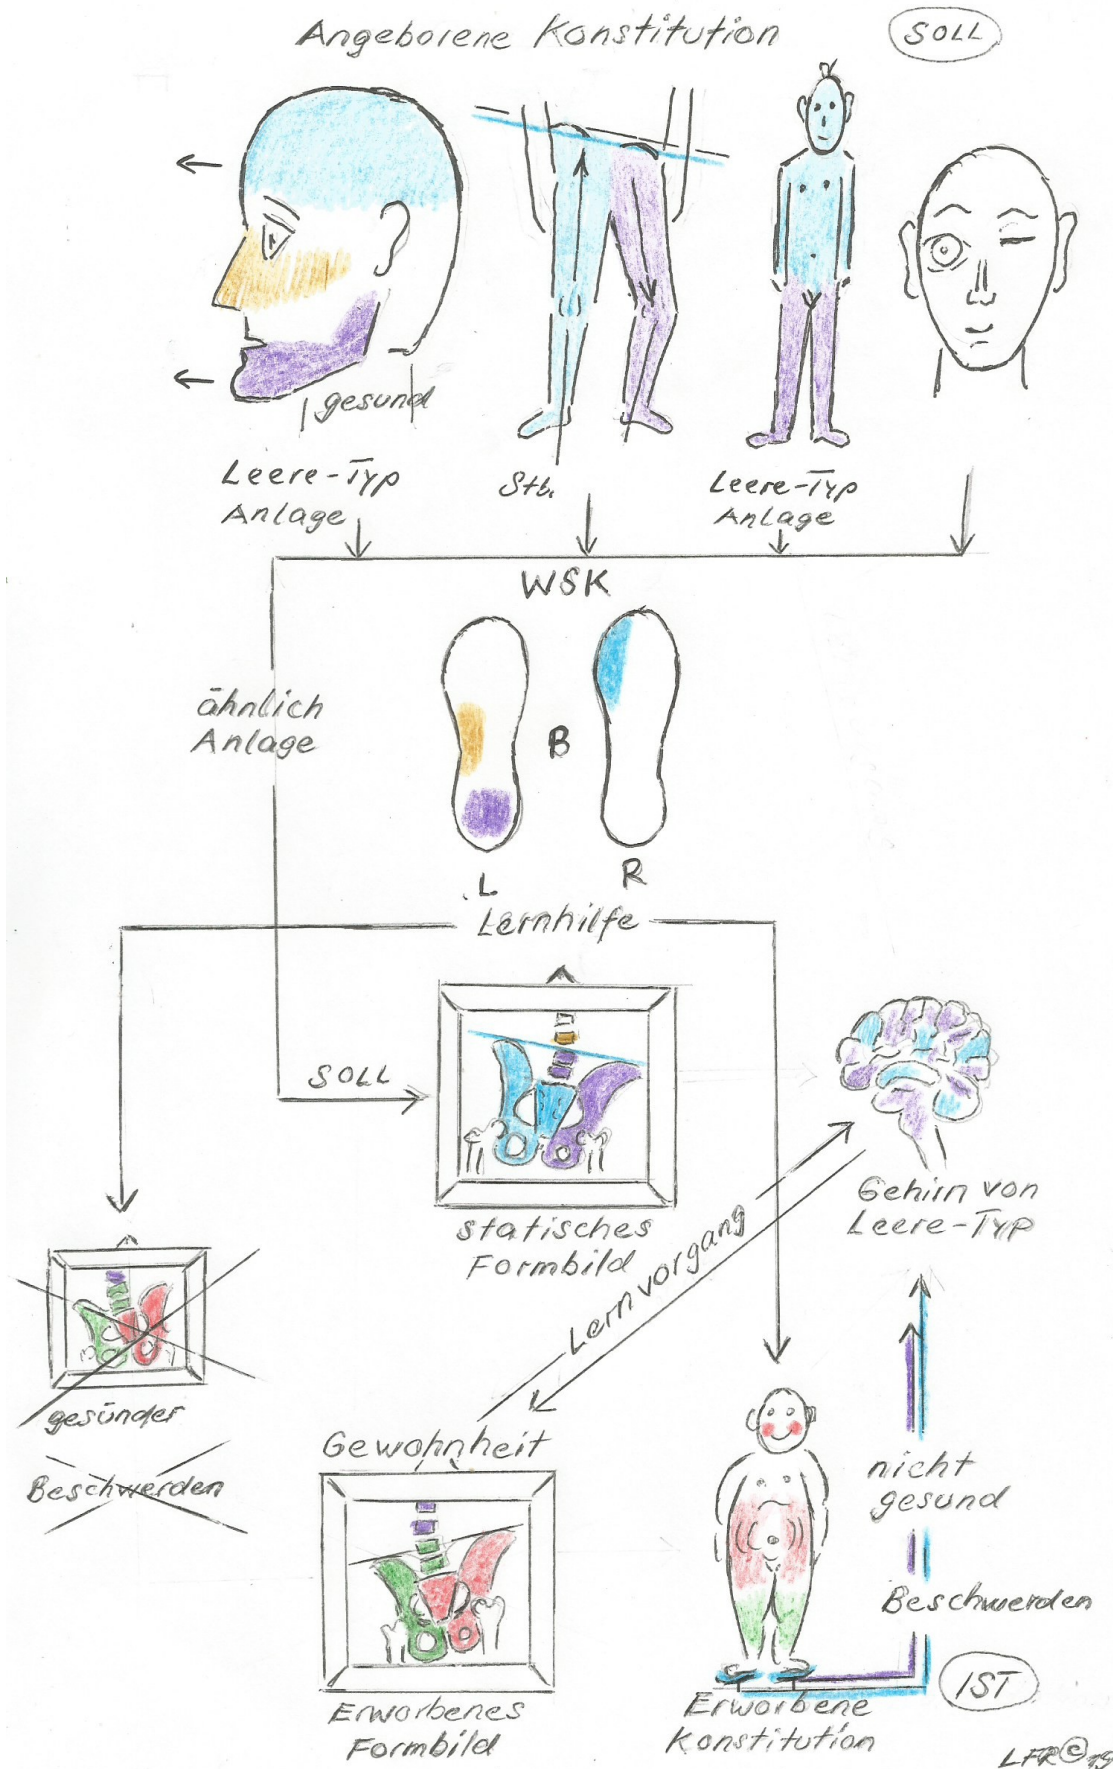 Angeborene Konstitution
SOLL
gesund
Leere-Typ
Anlage
Stb.
Leere-Typ
Anlage
WSK
ähnlich
Anlage
B
L
R
Lernhilfe
SOLL
statisches
Formbild
Gehirn von
Leere-Typ
Lernvorgang
gesünder
Beschwerden
Gewohnheit
nicht
gesund
Beschwerden
IST
Erworbenes
Formbild
Erworbene
Konstitution
LFR©